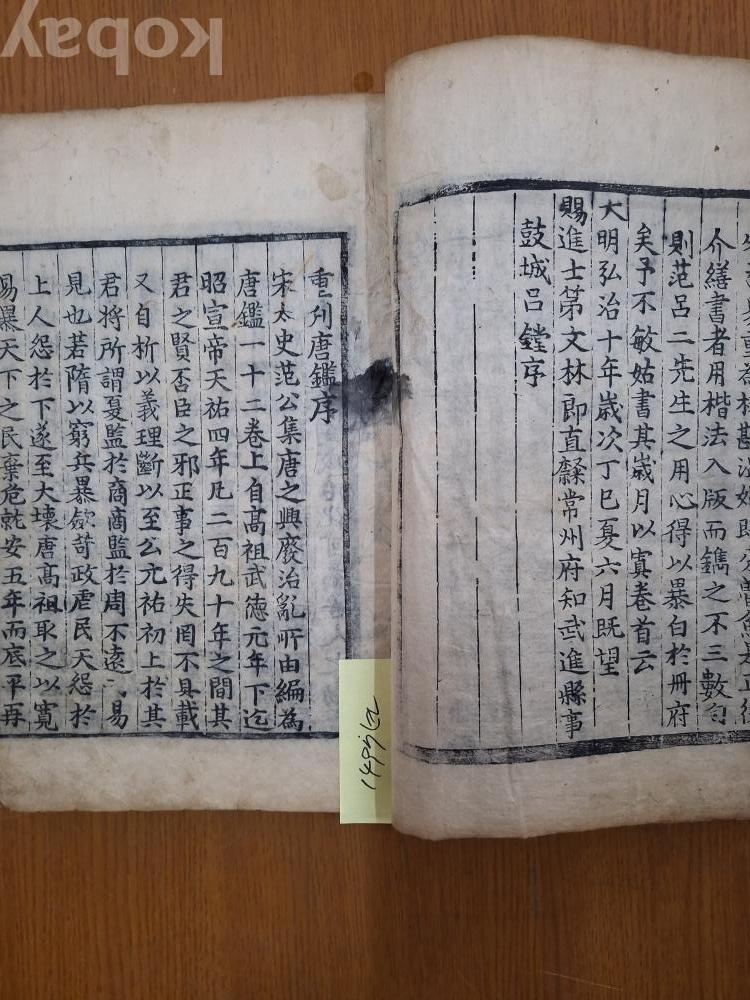 介繕書者用楷法入版而鐫之不三數旬
則范呂二先生之用心得以暴白於冊府
矣予不敏姑書其歲月以寘卷首云
大明弘治十年歲次丁巳夏六月既望
賜進士第文林郎直隸常州府知武進縣事
鼓城呂鏜序
重刋唐鑑序
宋太史范公集唐之興廢治亂所由編為
唐鑑一十二卷上自高祖武德元年下迄
昭宣帝天祐四年凡二百九十年之間其
君之賢否臣之邪正事之得失罔不具載
又自析以義理斷以至公元祐初上於其
君將所謂夏監於商商監於周不遠易
見也若隋以窮兵暴斂苛政虐民天怨於
上人怨於下遂至大壞唐高祖取之以寬
易暴天下之民棄危就安五年而底平再
kobay